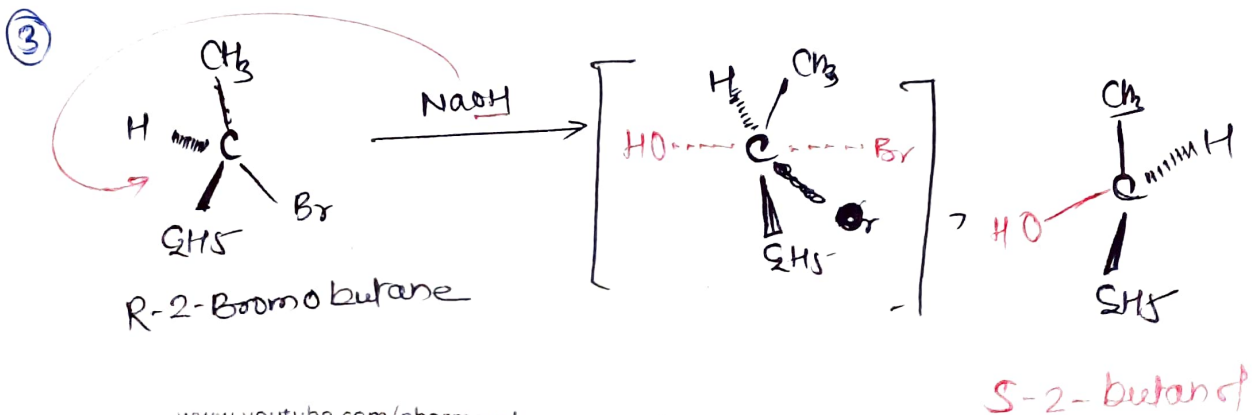 3
CH3
H C Br
C2H5
R-2-Bromobutane
NaOH
H CH3
HO C Br
C2H5
CH3
H
HO C
C2H5
S-2-butanol